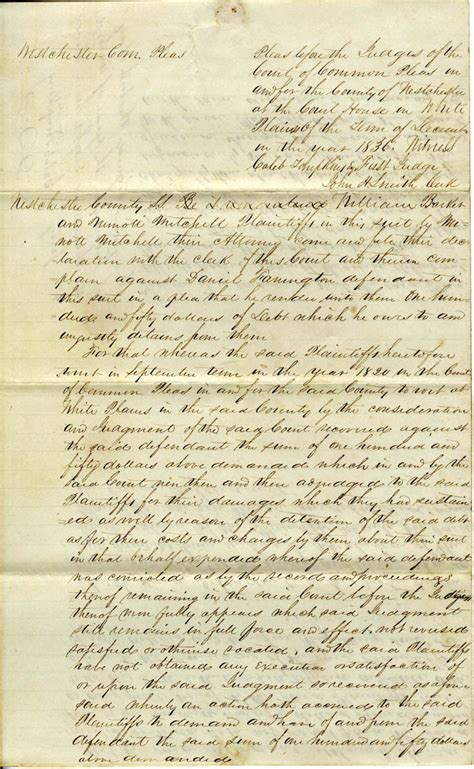 Westchester Com. Pleas
Pleas before the Judges of the
Court of Common Pleas in
and for the County of Westchester
at the Court House in White
Plains Of the Term of December
in the year 1836. Witness
Caleb Tompkins First Judge
John H Smith Clerk
Westchester County Ss. Be it William Barker
and Minott Mitchell Plaintiffs in this suit by Mi-
nott Mitchell their Attorney come and file their dec-
laration with the Clerk of this Court and therein com-
plain against Daniel Farrington defendant in
this suit in a plea that he render unto them One hun-
dred and fifty dollars of Debt which he owes to and
unjustly detains from them
For that whereas the said Plaintiffs heretofore
to wit in September term in the year 1820 in the Court
of Common Pleas in and for the said County to wit at
White Plains in the said County by the consideration
and Judgment of the said Court recovered against
the said defendant the sum of one hundred and
fifty dollars above demanded which in and by the
said Court were then and there adjudged to the said
Plaintiffs for their damages which they had sustain-
=ed as well by reason of the detention of the said debt
as for their costs and charges by them about their suit
in that behalf expended whereof the said defendant
was convicted as by the records and proceedings
thereof remaining in the said Court before the Judges
thereof more fully appears which said Judgment
still remains in full force and effect, not reversed
satisfied or otherwise vacated, and the said Plaintiffs
hath not obtained any Execution or satisfaction of
or upon the said Judgment so recovered as afore-
said whereby an action hath accrued to the said
Plaintiffs to demand and have of and from the said
defendant the said sum of One hundred and fifty dollars
above demanded